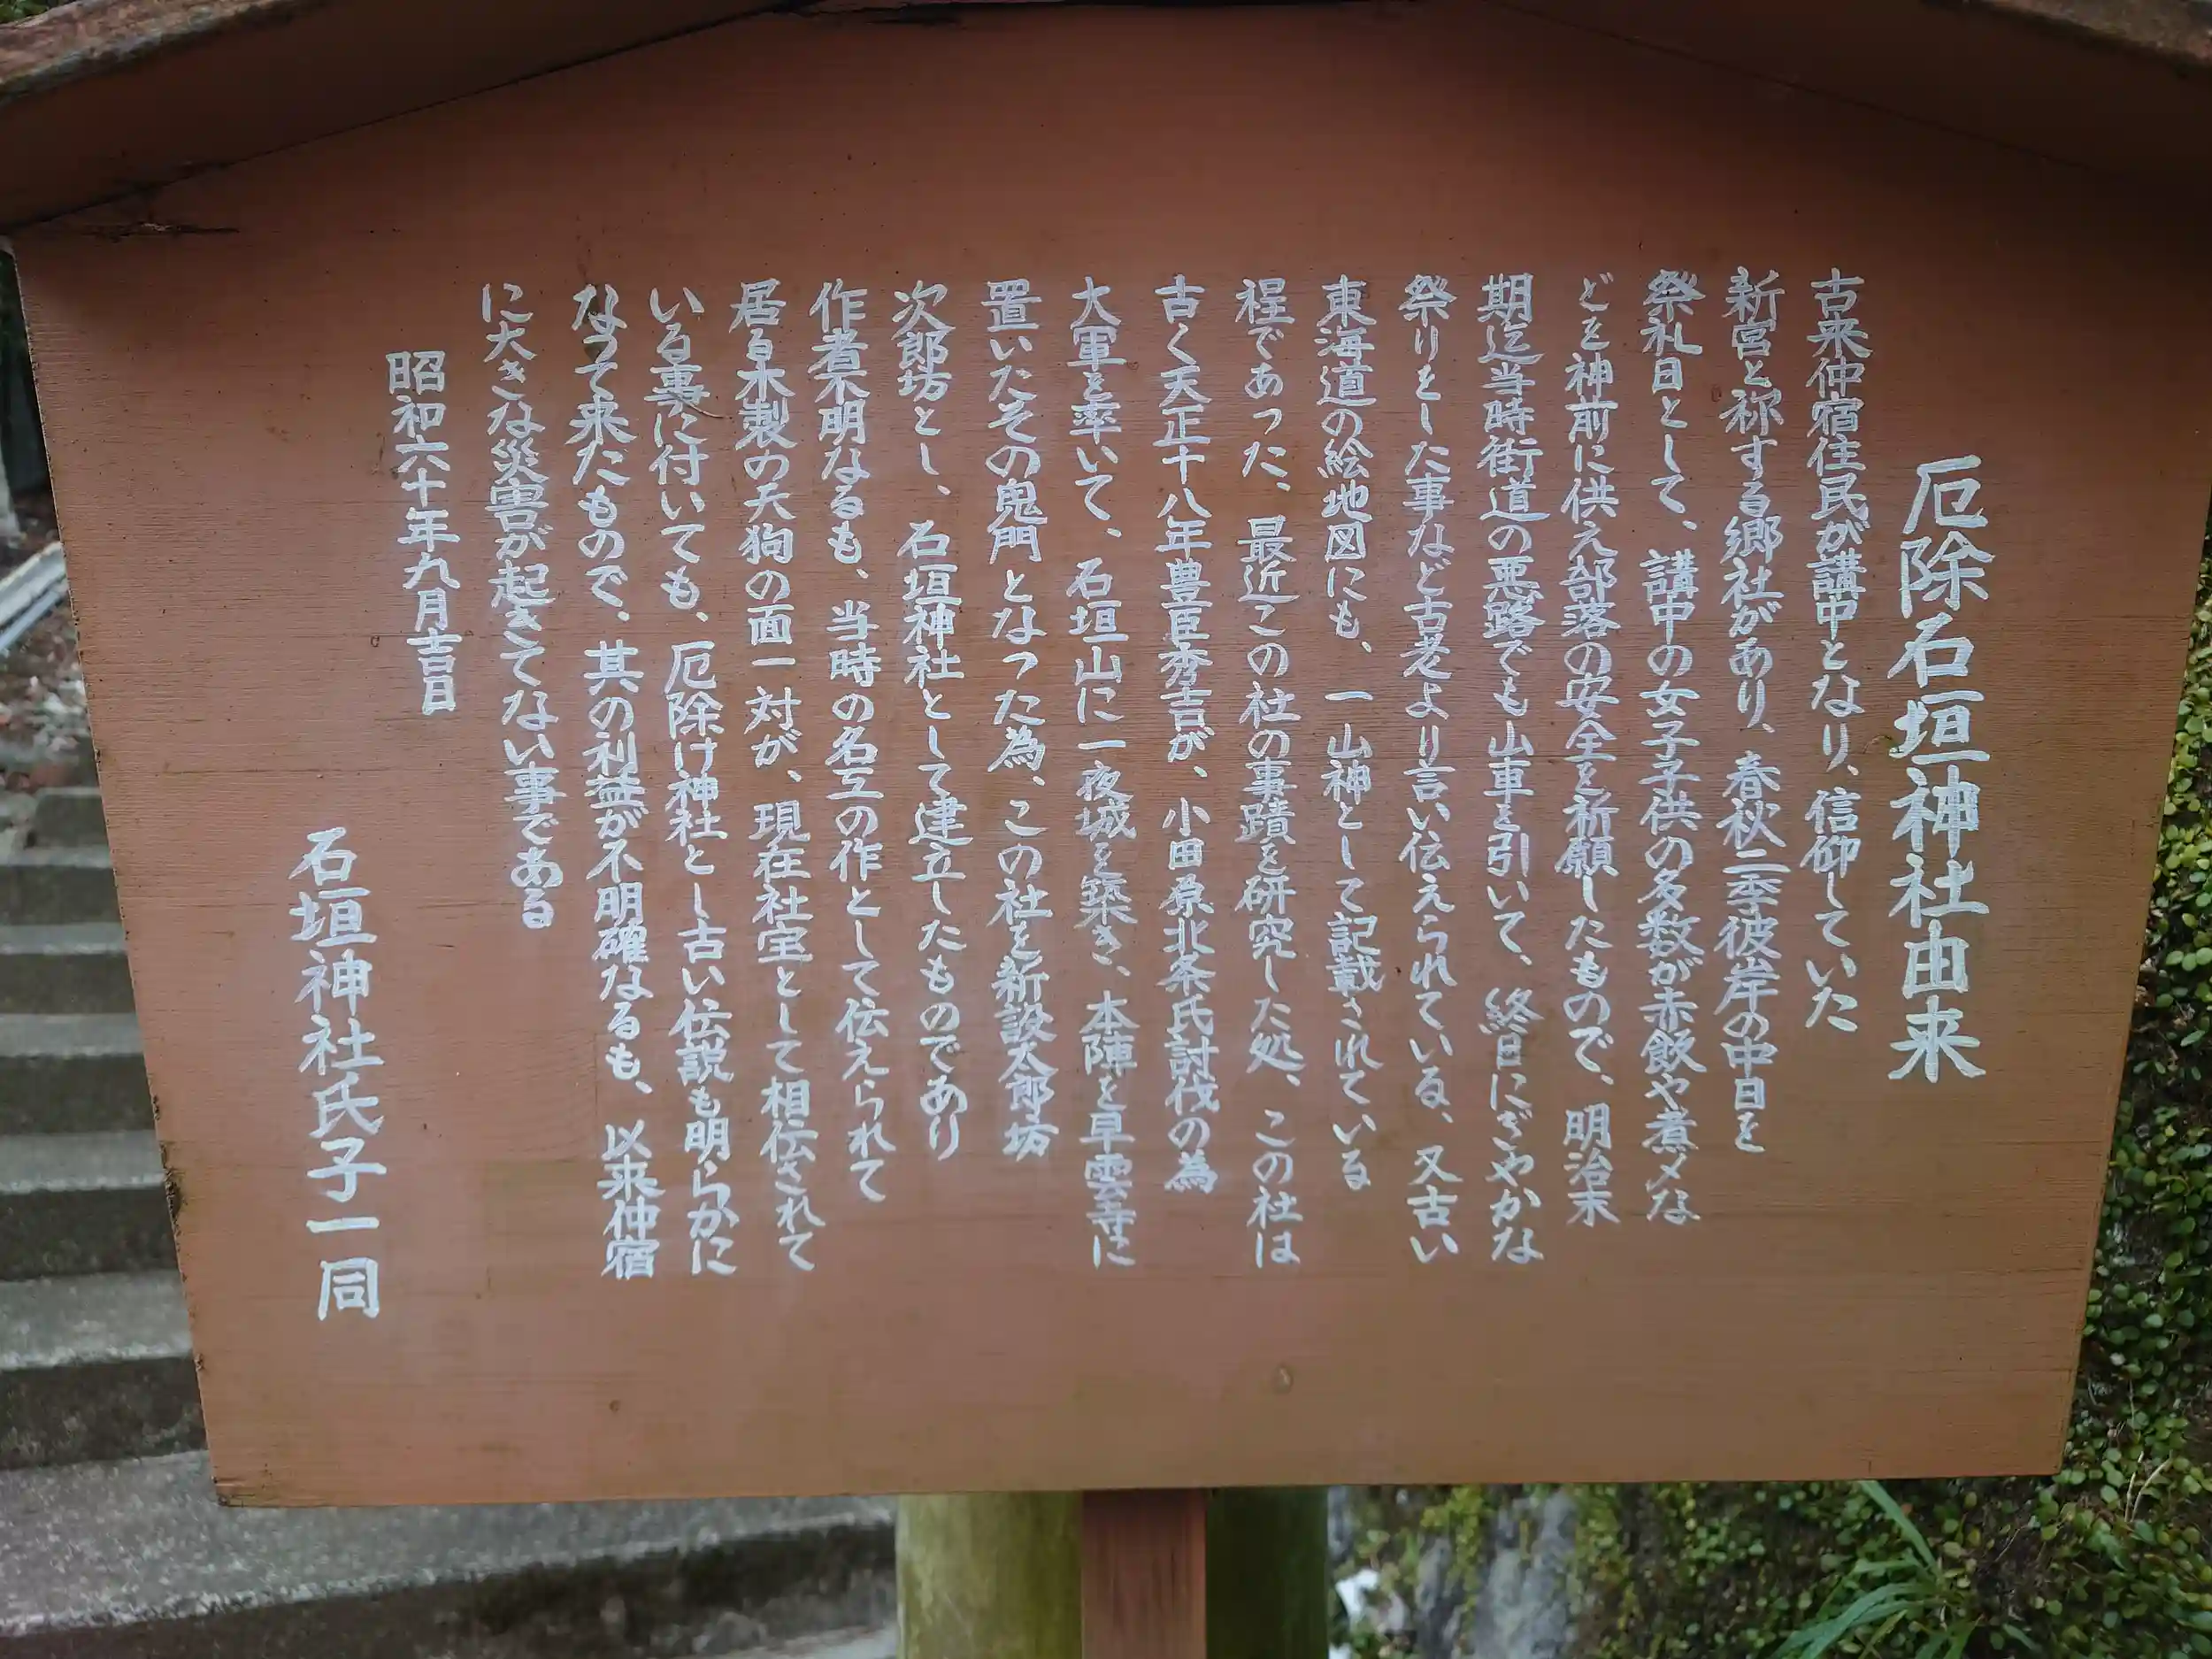 厄除石垣神社由来
古来仲宿住民が講中となり、信仰していた
新宮と祢する郷社があり、春秋二季彼岸の中日を
祭礼日として、講中の女子子供の多数が赤飯や煮〆な
どを神前に供え部落の安全を祈願したもので、明治末
期迄当時街道の悪路でも山車を引いて、終日にぎやかな
祭りをした事など古老より言い伝えられている、又古い
東海道の絵地図にも、一山神として記載されている
程であった、最近この社の事蹟を研究した処、この社は
古く天正十八年豊臣秀吉が、小田原北条氏討伐の為
大軍を率いて、石垣山に一夜城を築き、本陣を早雲寺に
置いたその鬼門となった為、この社を新設太郎坊
次郎坊とし、石垣神社として建立したものであり
作者不明なるも、当時の名工の作として伝えられて
居る木製の天狗の面一対が、現在社宝として相伝されて
いる事に付いても、厄除け神社とし古い伝説も明らかに
なって来だもので、其の利益が不明確なるも、以来仲宿
に大きな災害が起きてない事である
昭和六十年九月吉日
石垣神社氏子一同